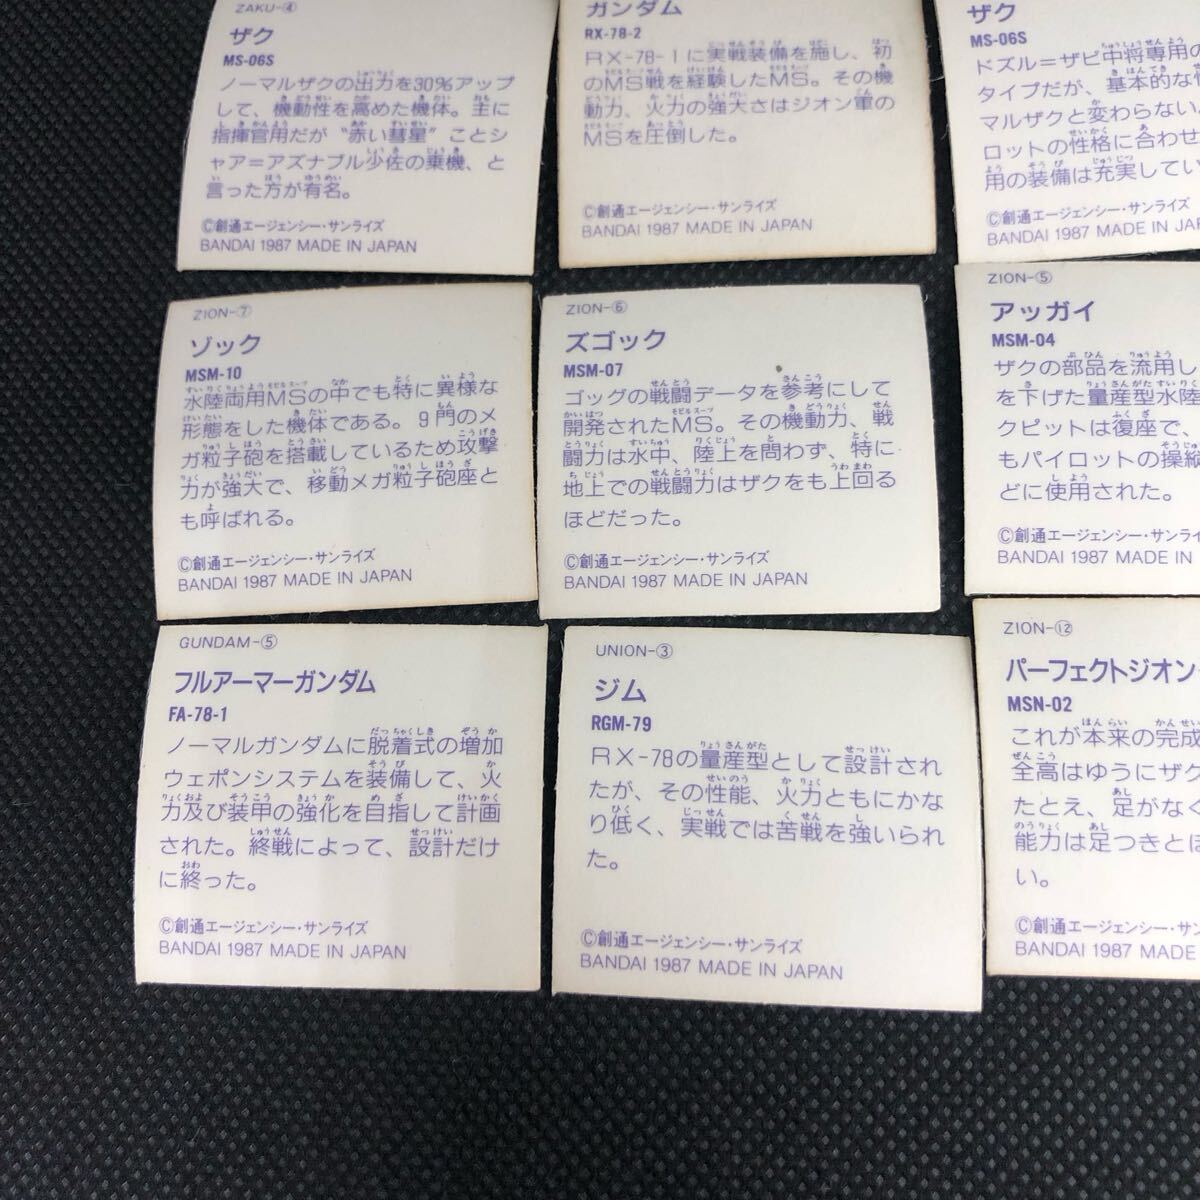 ZAKU-④
ザク
MS-06S
ノーマルザクの出力を30%アップ
して、機動性を高めた機体。主に
指揮官用だが“赤い彗星”ことシ
ャア=アズナブル少佐の乗機、と
言った方が有名。
©創通エージェンシー・サンライズ
BANDAI 1987 MADE IN JAPAN
ガンダム
RX-78-2
RX-78-1に実戦装備を施し、初
のMS戦を経験したMS。その機
動力、火力の強大さはジオン軍の
MSを圧倒した。
©創通エージェンシー・サンライズ
BANDAI 1987 MADE IN JAPAN
ザク
MS-06S
ドズル=ザビ中将専用の
タイプだが、基本的な
マルザクと変わらない
ロットの性格に合わせ
用の装備は充実してい
©創通エージェンシー・サンライズ
BANDAI 1987 MADE IN JAP
ZION-⑦
ゾック
MSM-10
水陸両用MSの中でも特に異様な
形態をした機体である。9門のメ
ガ粒子砲を搭載しているため攻撃
力が強大で、移動メガ粒子砲座と
も呼ばれる。
©創通エージェンシー・サンライズ
BANDAI 1987 MADE IN JAPAN
ZION-⑥
ズゴック
MSM-07
ゴッグの戦闘データを参考にして
開発されたMS。その機動力、戦
闘力は水中、陸上を問わず、特に
地上での戦闘力はザクをも上回る
ほどだった。
©創通エージェンシー・サンライズ
BANDAI 1987 MADE IN JAPAN
ZION-⑤
アッガイ
MSM-04
ザクの部品を流用し
を下げた量産型水陸
クピットは復座で、
もパイロットの操縦
どに使用された。
©創通エージェンシー・サンライ
BANDAI 1987 MADE IN
GUNDAM-⑤
フルアーマーガンダム
FA-78-1
ノーマルガンダムに脱着式の増加
ウェポンシステムを装備して、火
力及び装甲の強化を目指して計画
された。終戦によって、設計だけ
に終った。
©創通エージェンシー・サンライズ
BANDAI 1987 MADE IN JAPAN
UNION-③
ジム
RGM-79
RX-78の量産型として設計され
たが、その性能、火力ともにかな
り低く、実戦では苦戦を強いられ
た。
©創通エージェンシー・サンライズ
BANDAI 1987 MADE IN JAPAN
ZION-⑫
パーフェクトジオング
MSN-02
これが本来の完成
全高はゆうにザク
たとえ、足がなく
能力は足つきとほ
い。
©創通エージェンシー・サン
BANDAI 1987 MADE IN